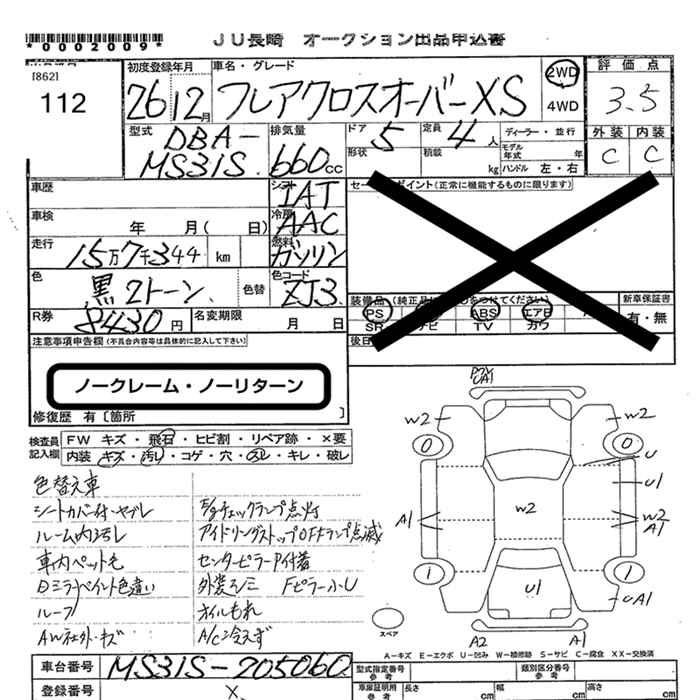 *0002009*
JU長崎 オークション出品申込書
[862]
112
初度登録年月
26年12月
車名・グレード
フレアクロスオーバーXS
2WD
4WD
評価点
3.5
外装 内装
C C
型式
DBA-
MS31S
排気量
660cc
ドア
5
定員
4人
ディーラー・並行
形状
積載
kg
モデル年式 年
ハンドル 左・右
車歴
シフト
IAT
セールスポイント(正常に機能するものに限ります)
車検
年 月( 日)
冷房
AAC
走行
15万7千344 km
燃料
ガソリン
色
黒2トーン
色替
色コード
ZJ3
装備品
新車保証書
PS ABS エアB
SR ナビ TV カワ
有・無
R券
8430円
名変期限
月 日
後日
注意事項申告欄(不具合内容等は具体的に記入して下さい)
ノークレーム・ノーリターン
修復歴 有〔箇所 〕
検査員記入欄
FW キズ・飛石・ヒビ割・リペア跡・×要
内装 キズ・汚れ・コゲ・穴・スレ・キレ・破レ
色替え車
シートカバー付・ヤブレ
ルーム内汚レ
車内ペット毛
Dミラーペイント色違い
ルーフ
AW社外・キズ
E/gチェックランプ点灯
アイドリングストップOFFランプ点滅
センターピラーP付着
外装スレ/ミ Fピラーハレ
オイルもれ
A/C冷えず
UA1
W2 W2
0 0
U
U1
W2
A1
W2
A1
1 1
U1
UA1
スペア
A2 A1
A-キズ E-エクボ U-凹み W-補修跡 S-サビ C-腐食 XX-交換済
車台番号
MS31S-205060
登録番号
型式指定番号
参考
類別区分番号
参考
車庫証明用
参考
長さ cm
幅 cm
高さ cm